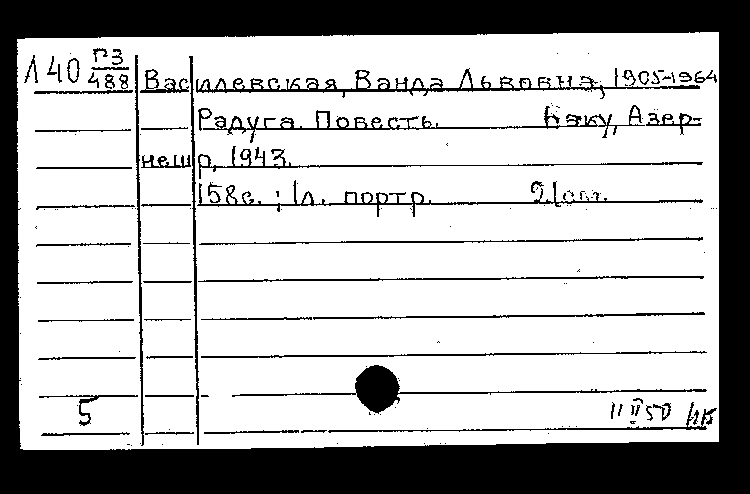 Л40 П3/488 Василевская, Ванда Львовна, 1905-1964
Радуга. Повесть. Баку, Азер-
нешр, 1943.
158с. ; 1л. портр.
5 11 II 50